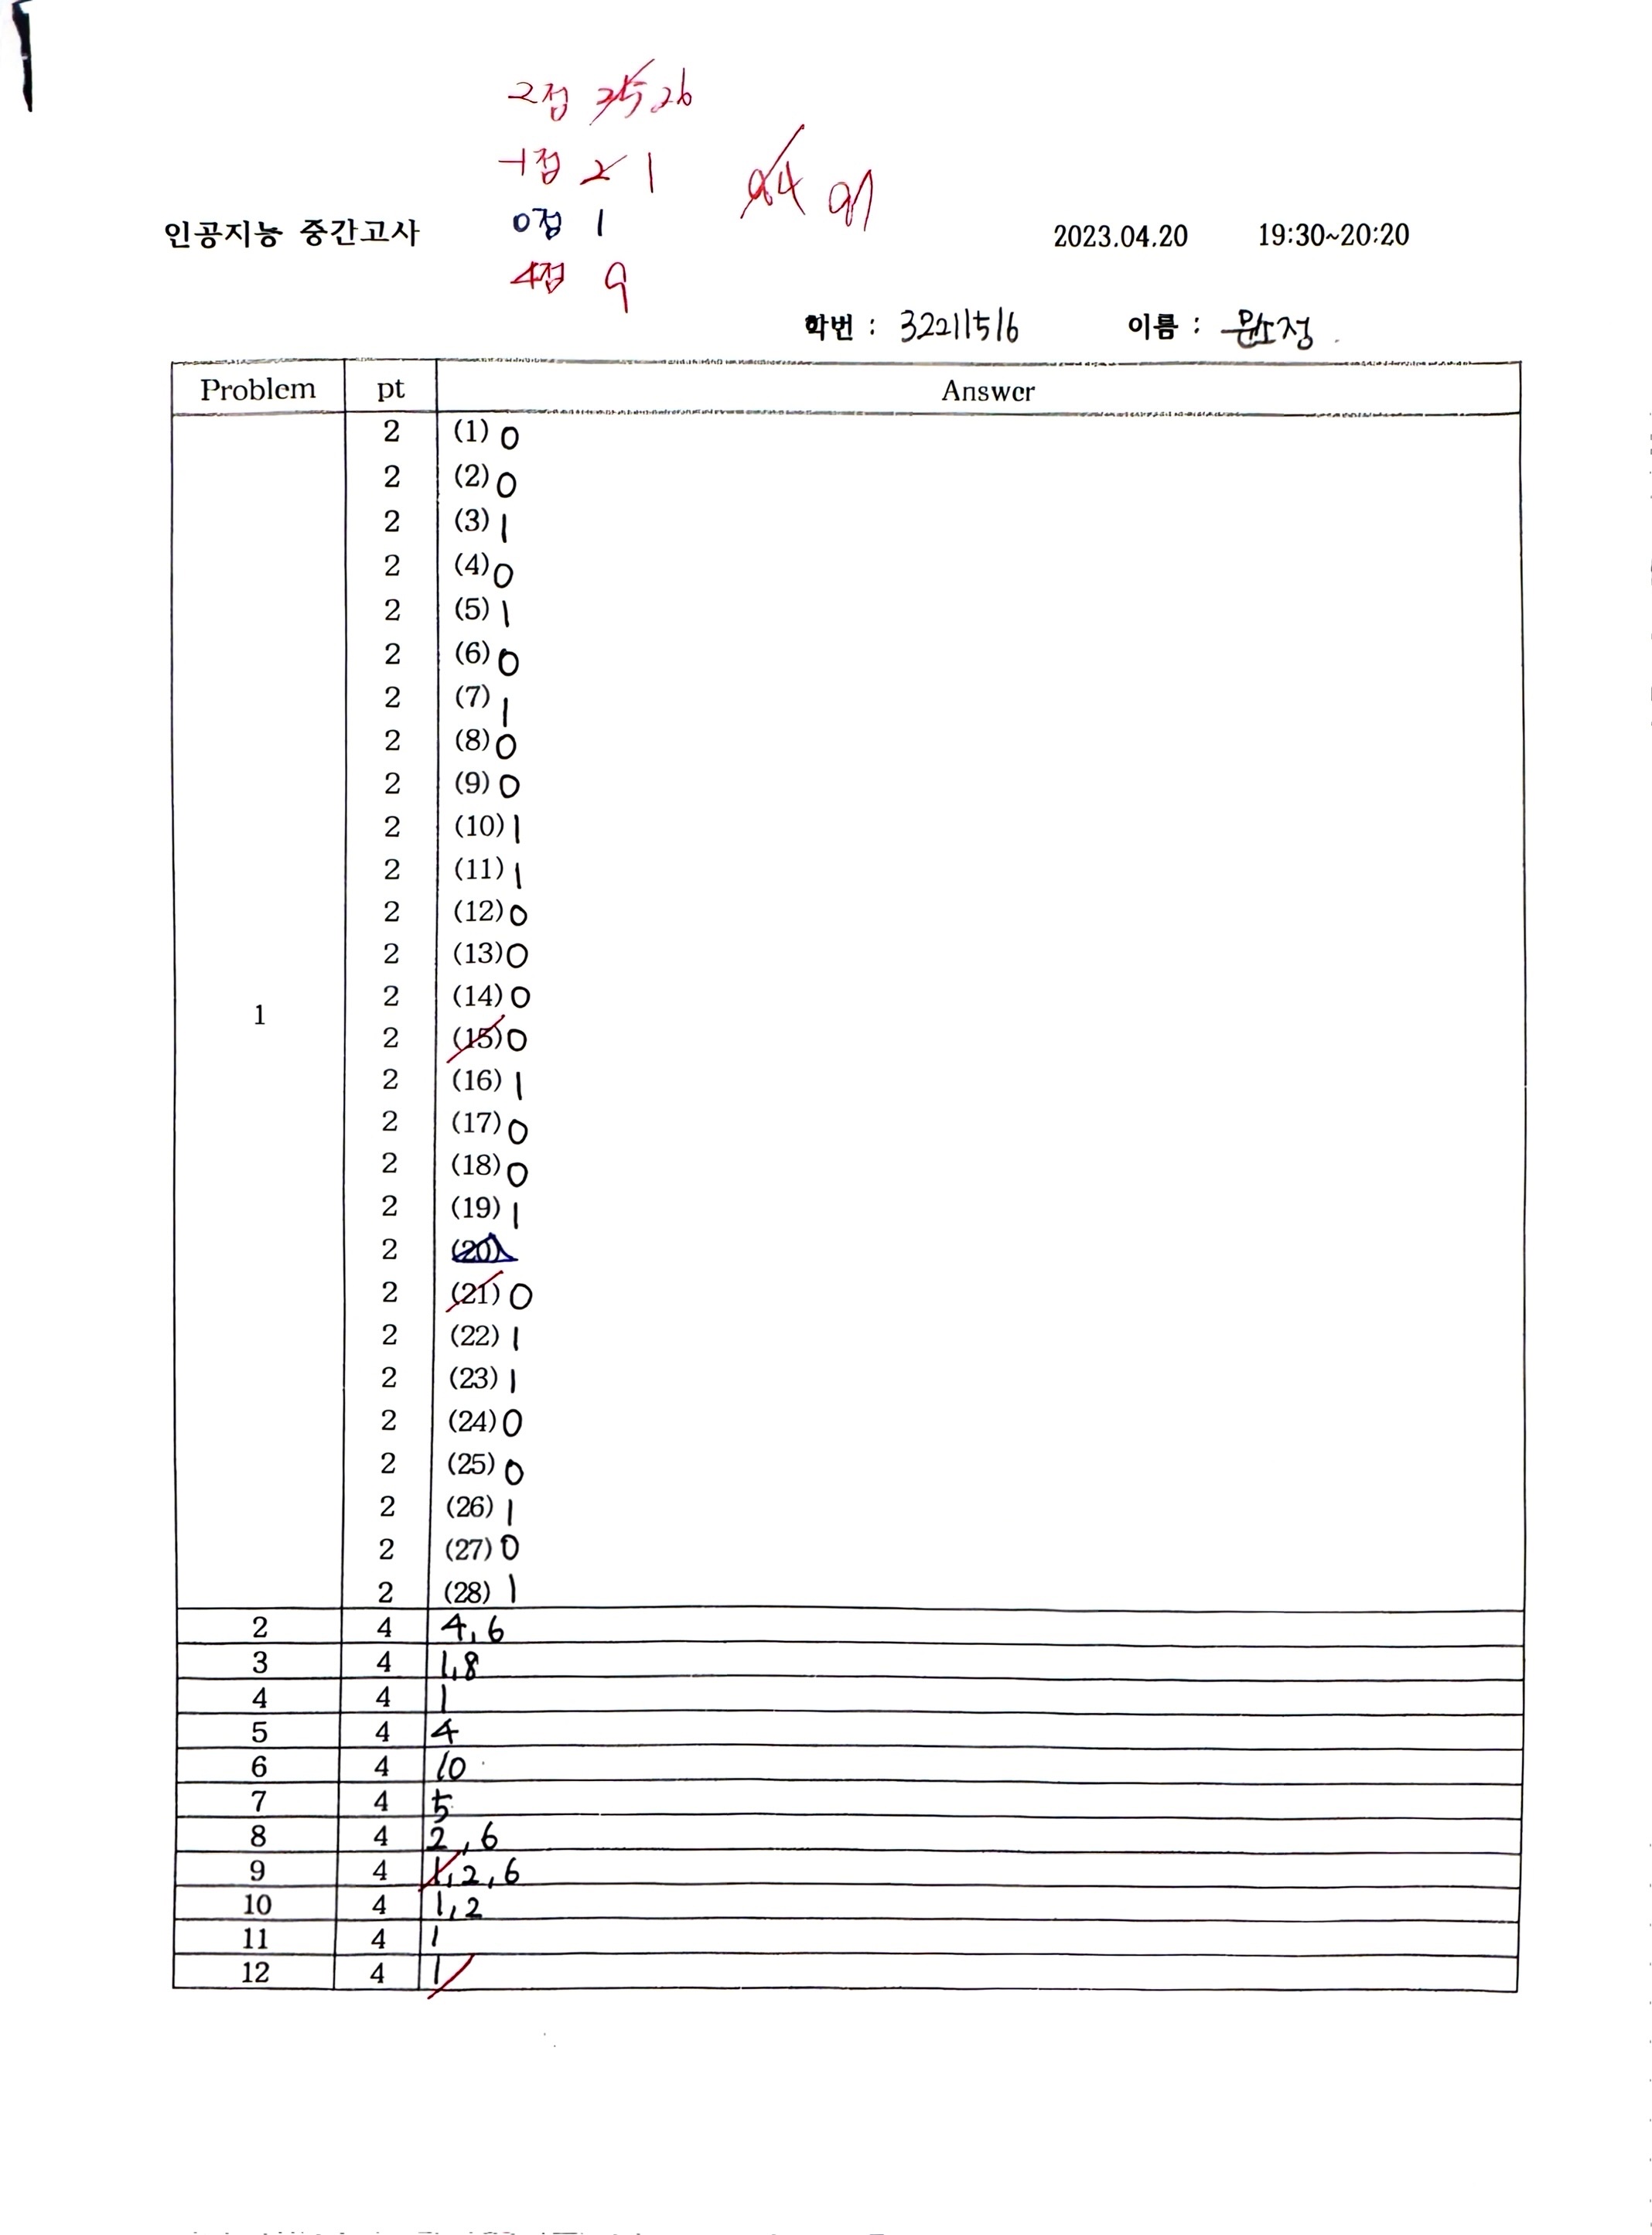 2점 35 26
-1점 2 1
84 87
인공지능 중간고사 0점 1 2023.04.20 19:30~20:20
4점 9
학번 : 32211516 이름 : 문소정
Problem pt Answer
1
2 (1) 0
2 (2) 0
2 (3) 1
2 (4) 0
2 (5) 1
2 (6) 0
2 (7) 1
2 (8) 0
2 (9) 0
2 (10) 1
2 (11) 1
2 (12) 0
2 (13) 0
2 (14) 0
2 (15) 0
2 (16) 1
2 (17) 0
2 (18) 0
2 (19) 1
2 (20)
2 (21) 0
2 (22) 1
2 (23) 1
2 (24) 0
2 (25) 0
2 (26) 1
2 (27) 0
2 (28) 1
2 4 4, 6
3 4 1,8
4 4 1
5 4 4
6 4 10
7 4 5
8 4 2, 6
9 4 1, 2, 6
10 4 1, 2
11 4 1
12 4 1